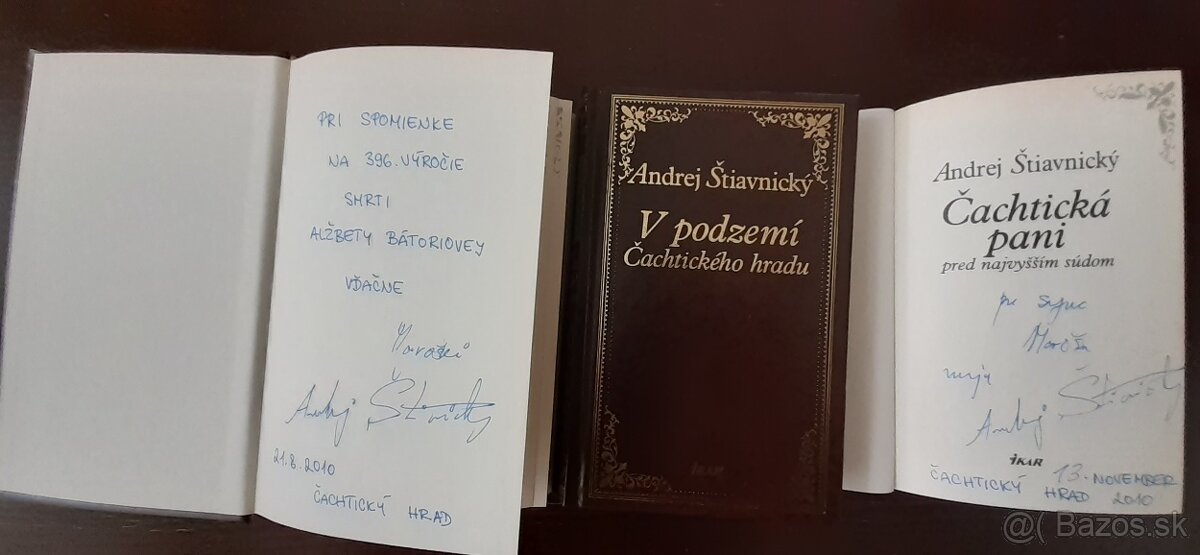 PRI SPOMIENKE
NA 396. VÝROČIE
SMRTI
ALŽBETY BÁTORIOVEJ
VĎAČNE
Andrej Štiavnický
21.8.2010
ČACHTICKÝ HRAD
Andrej Štiavnický
V podzemí
Čachtického hradu
IKAR
Andrej Štiavnický
Čachtická
pani
pred najvyšším súdom
Andrej Štiavnický
IKAR
ČACHTICKÝ HRAD 13. NOVEMBER
2010
@( Bazos.sk